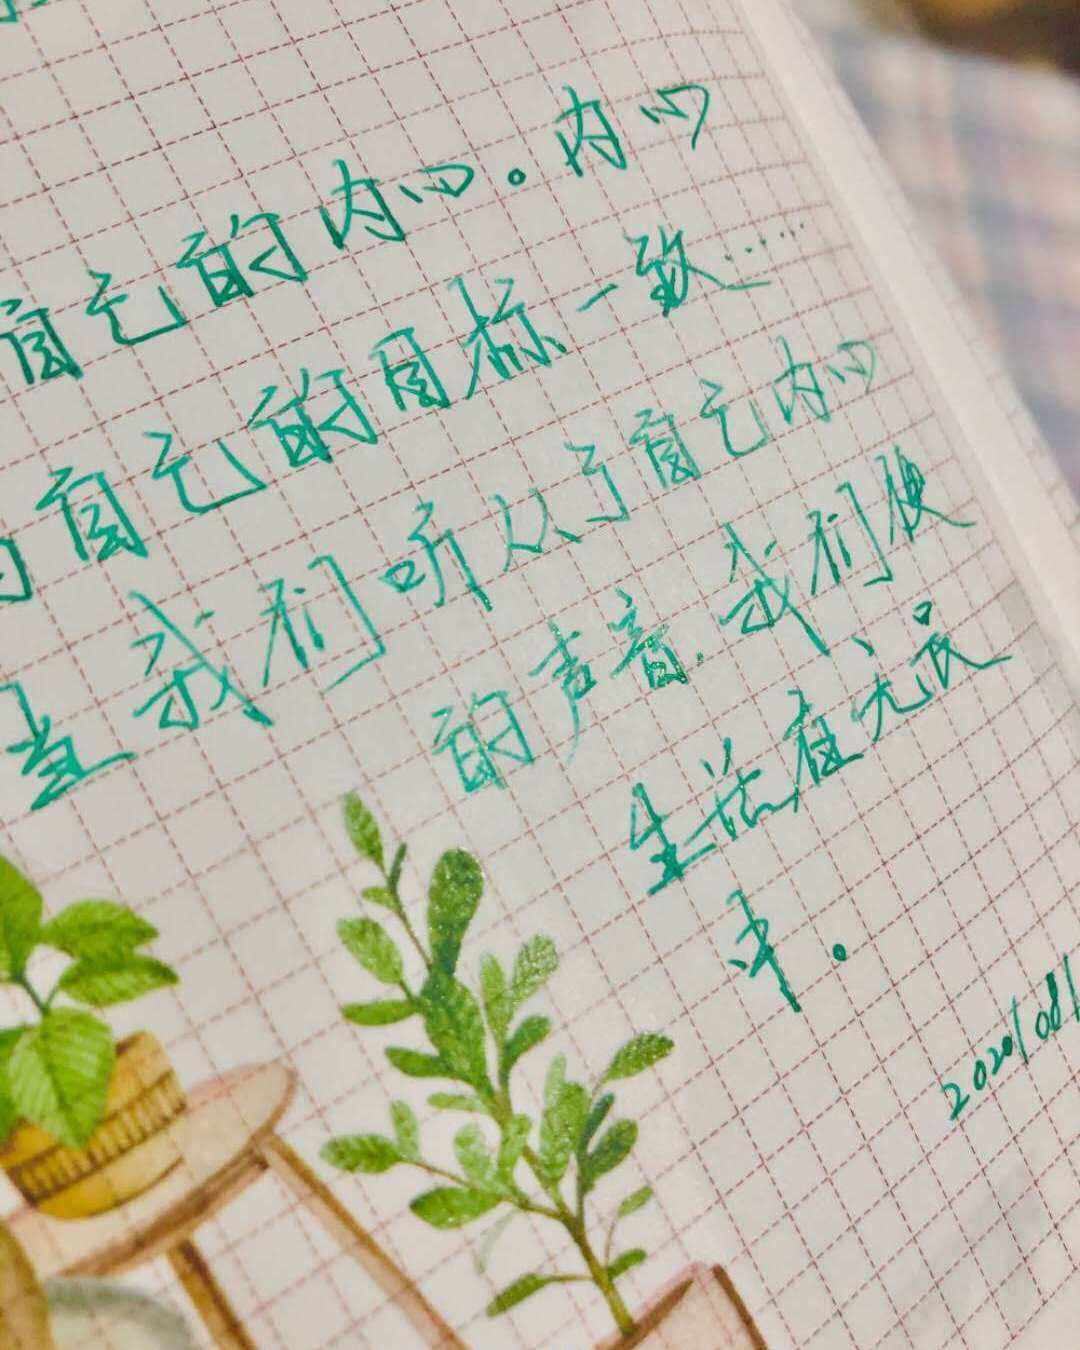 自己的内心。内心
自己的目标一致……
当我们听从了自己内心
的声音.我们便
生活在无畏
中。
2020/08/